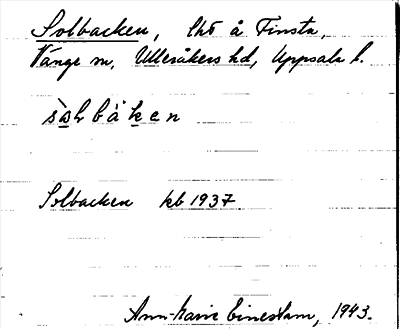 Solbacken, lht å Finsta,
Vänge sn, Ulleråkers hd, Uppsala l.
sòlbák̲e̲n
Solbacken kb 1937.
Ann-Marie Einestam, 1943.